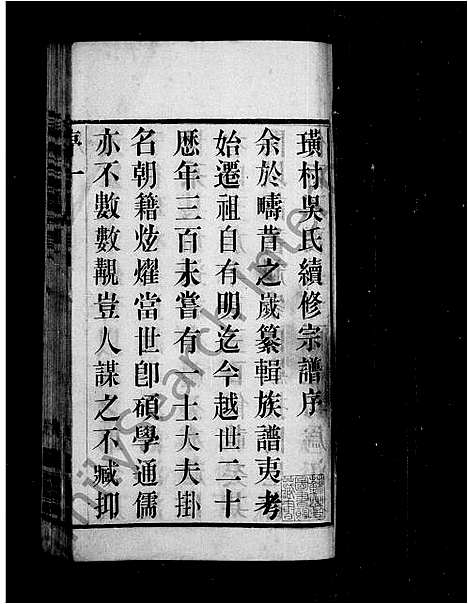 璜村吳氏續修宗譜序
余於疇昔之歲纂輯族譜夷考
始遷祖自有明迄今越世二十
歷年三百未嘗有一士大夫掛
名朝籍炫燿當世卽碩學通儒
亦不數數覯豈人謀之不臧抑
序一